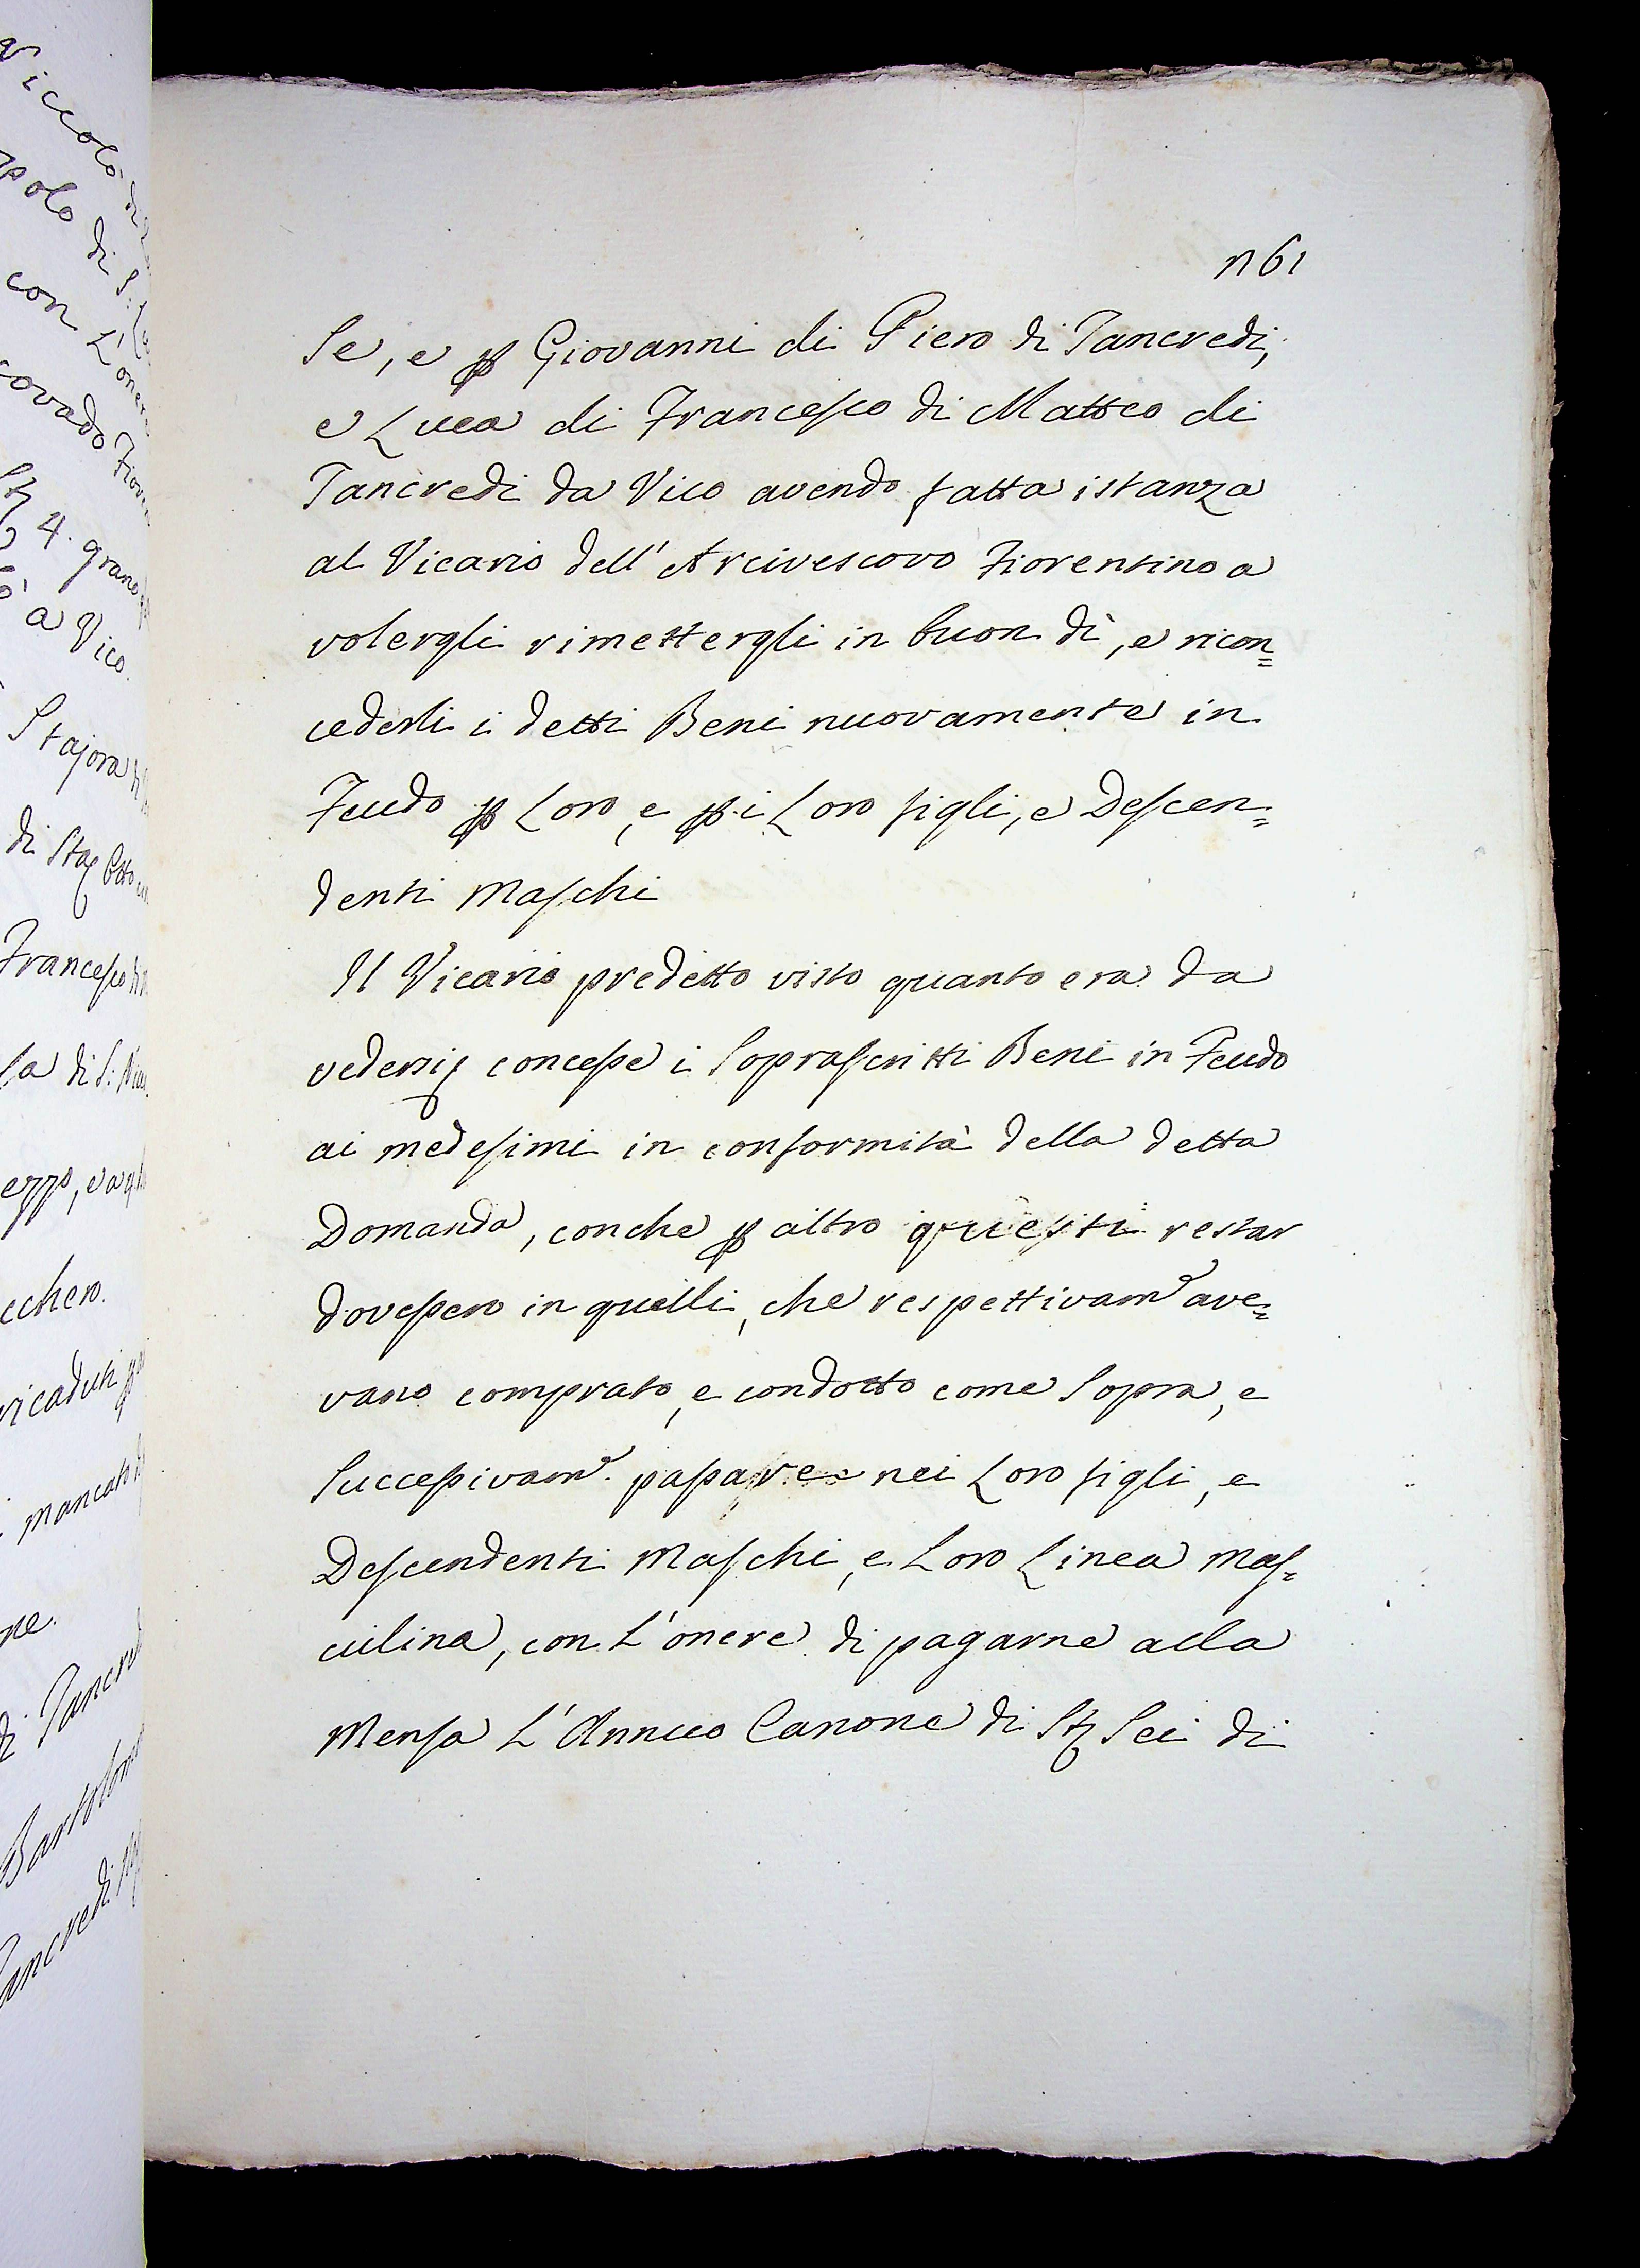 n 61
Se, e p Giovanni di Piero di Tancredi,
e Luca di Francesco di Matteo di
Tancredi da Vico avendo fatta istanza
al Vicario dell'Arcivescovo Fiorentino a
volergli rimettergli in buon dì, e ricon=
cederli i detti Beni nuovamente in
Feudo p Loro, e p i Loro figli, e Descen=
denti Maschi
Il Vicario predetto visto quanto era da
vedersi concesse i Soprascritti Beni in Feudo
ai medesimi in conformità della detta
Domanda, con che p altro questi restar
dovessero in quelli, che respettivam.e ave=
vano comprato, e condotto come Sopra, e
Successivam.e passare nei Loro figli, e
Descendenti Maschi, e Loro Linea Mas=
culina, con L'onere di pagarne alla
Mensa L'Annuo Canone di St Sei di
Niccolò di
polo di S.
con L'onere
covado Fioren
4. grano
a Vico.
Stajora
di Sta
Francesco
sa di S. Nic
ezzo, e
cchero.
ricaduti
mancato
ne.
di Tancred
Bartolom
Tancredi